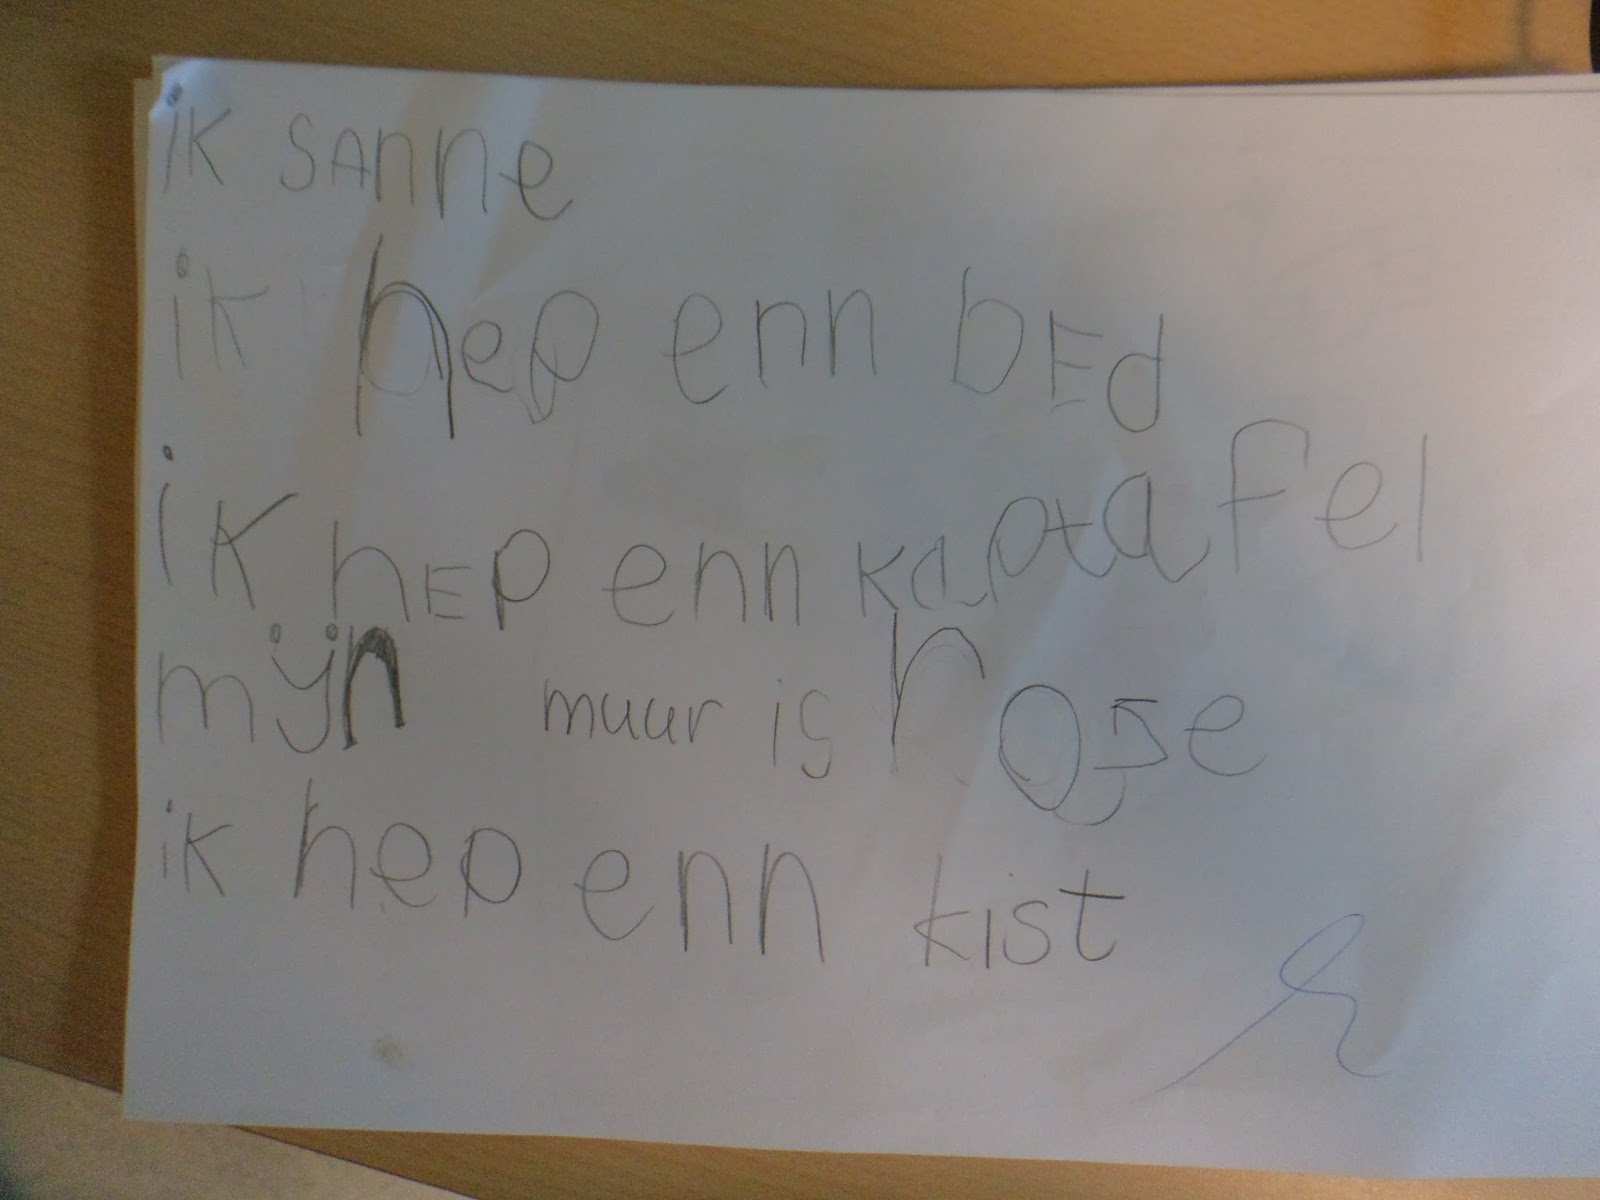 ik sAnne
ik hep enn bEd
ik hEp enn kaptafel
mijn muur is rose
ik hep enn kist